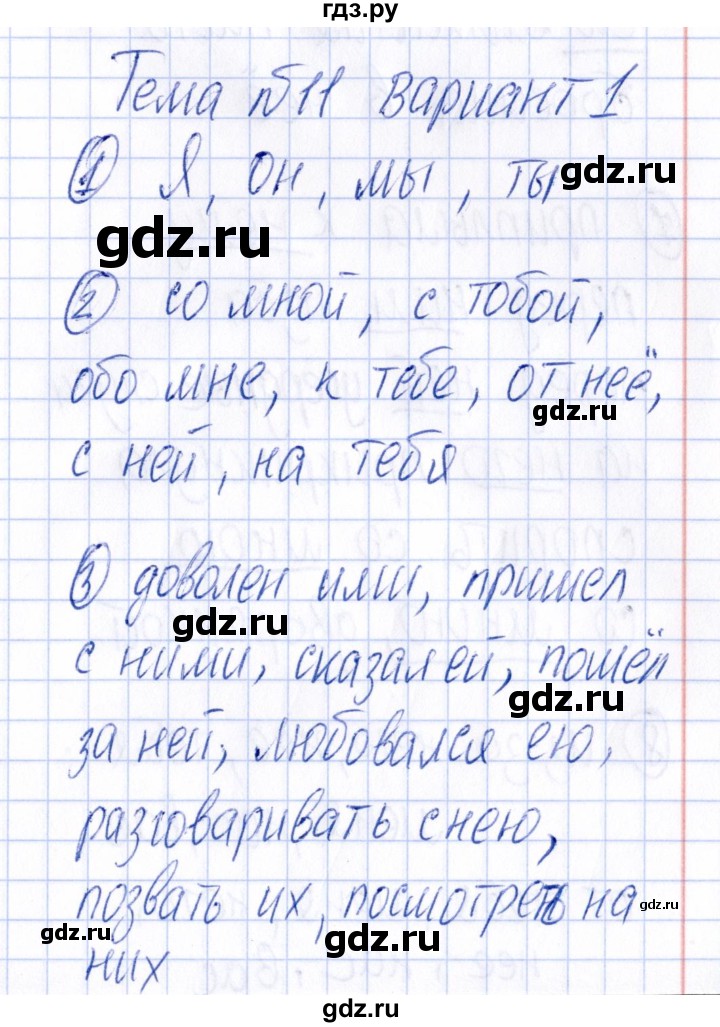 гдз.ру
Тема №11 Вариант 1
① Я, он, мы, ты
gdz.ru
gdz.ru
② со мной, с тобой,
gdz.ru
обо мне, к тебе, от неё,
gdz.ru
с ней, на тебя
③ доволен ими, пришел
gdz.ru
с ними, сказал ей, пошёл
gdz.ru
за ней, любовался ею,
разговаривать с нею,
позвать их, посмотреть на
gdz.ru
gdz.ru
gdz.ru
них
gdz.ru